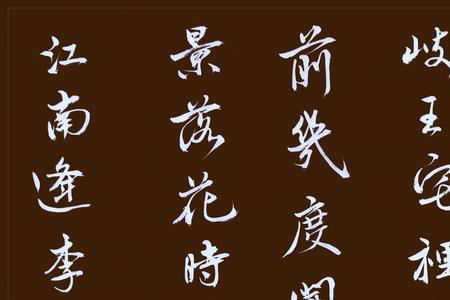 岐王宅裡
前幾度聞
景落花時
江南逢李